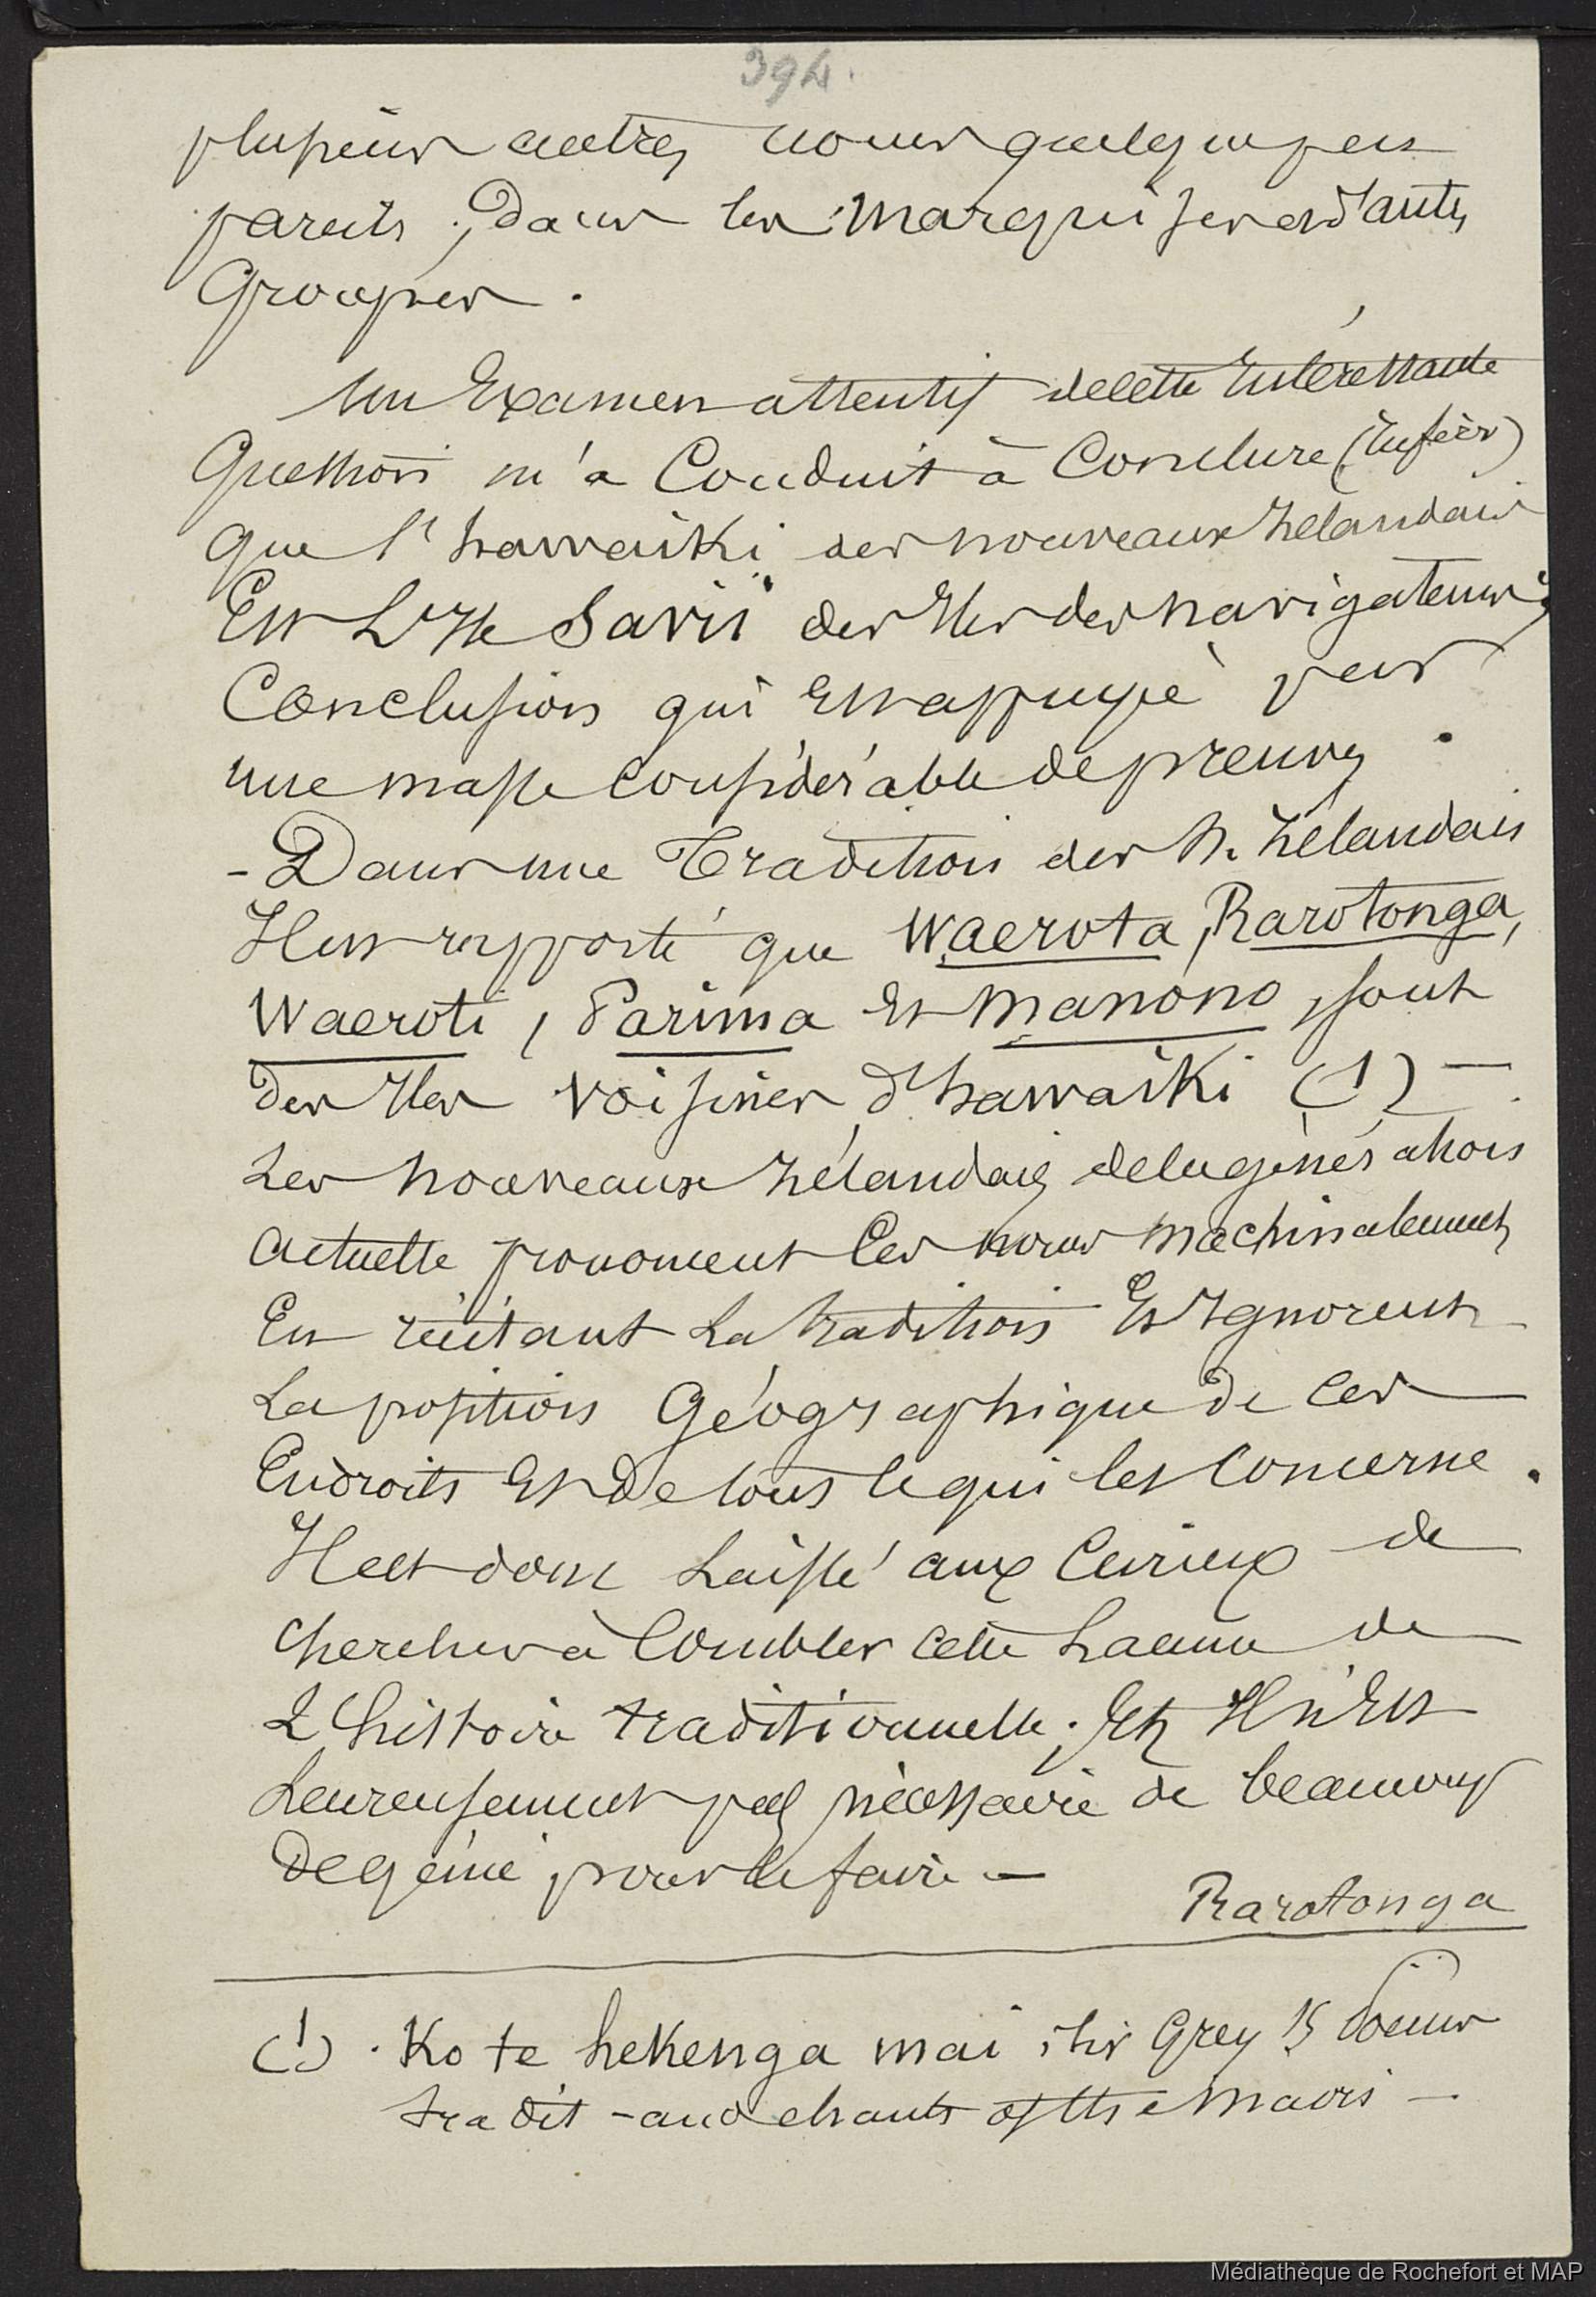 394.
plusieurs autres noms quelque peu
pareils, dans les Marquises et d'autres
Groupes.
Un Examen attentif de cette Intéressante
Question m'a Conduit à Conclure (inférer)
que l'hawaiki des nouveaux Zélandais
Est L'Ile Savii des Iles des navigateurs,
Conclusion qui Est appuyée par
une masse considérable de preuves.
- Dans une Tradition des N. Zélandais
Il est rapporté que Waerota, Rarotonga,
Waeroti, Parima Et Manono, sont
des Iles voisines d'hawaiki (1) —.
Les nouveaux Zélandais de la
actuelle prononcent Ces noms machinalement
En récitant La tradition Et Ignorent
La position Géographique de Ces
Endroits Et De tous ce qui les Concerne.
Il est donc Laissé aux Curieux de
chercher à Combler cette Lacune de
L'histoire traditionnelle. Et, Il n'Est
heureusement pas nécessaire de beaucoup
De génie, pour le faire —
Rarotonga
(1). Ko te hekenga mai, Sir Grey's Poems
tradit - and chants of the Maoris —
Médiathèque de Rochefort et MAP